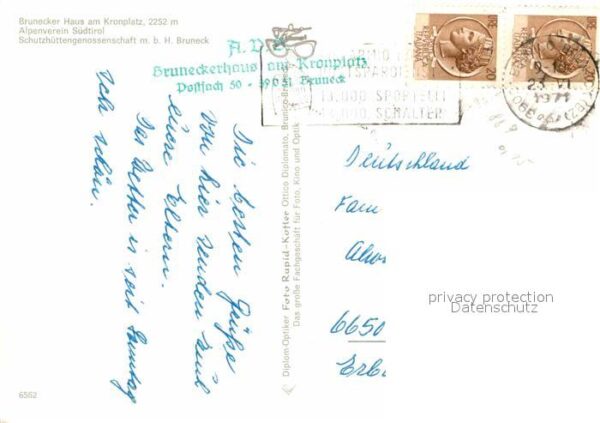 Brunecker Haus am Kronplatz, 2252 m
Alpenverein Südtirol
Schutzhüttengenossenschaft m. b. H. Bruneck
A.V.S
Bruneckerhaus am Kronplatz
Postfach 50 - 39031 Bruneck
13.000 SPORTELLI
SCHALTER
1971
Die besten Grüße
von hier senden Euch
eure Eltern.
Das Wetter is seit Samstag
sehr schön.
Diplom-Optiker Foto Rapid-Kofler Ottico Diplomato, Brunico-Bruneck
Das große Fachgeschäft für Foto, Kino und Optik
Deutschland
Fam
6650
Erb
privacy protection
Datenschutz
6562